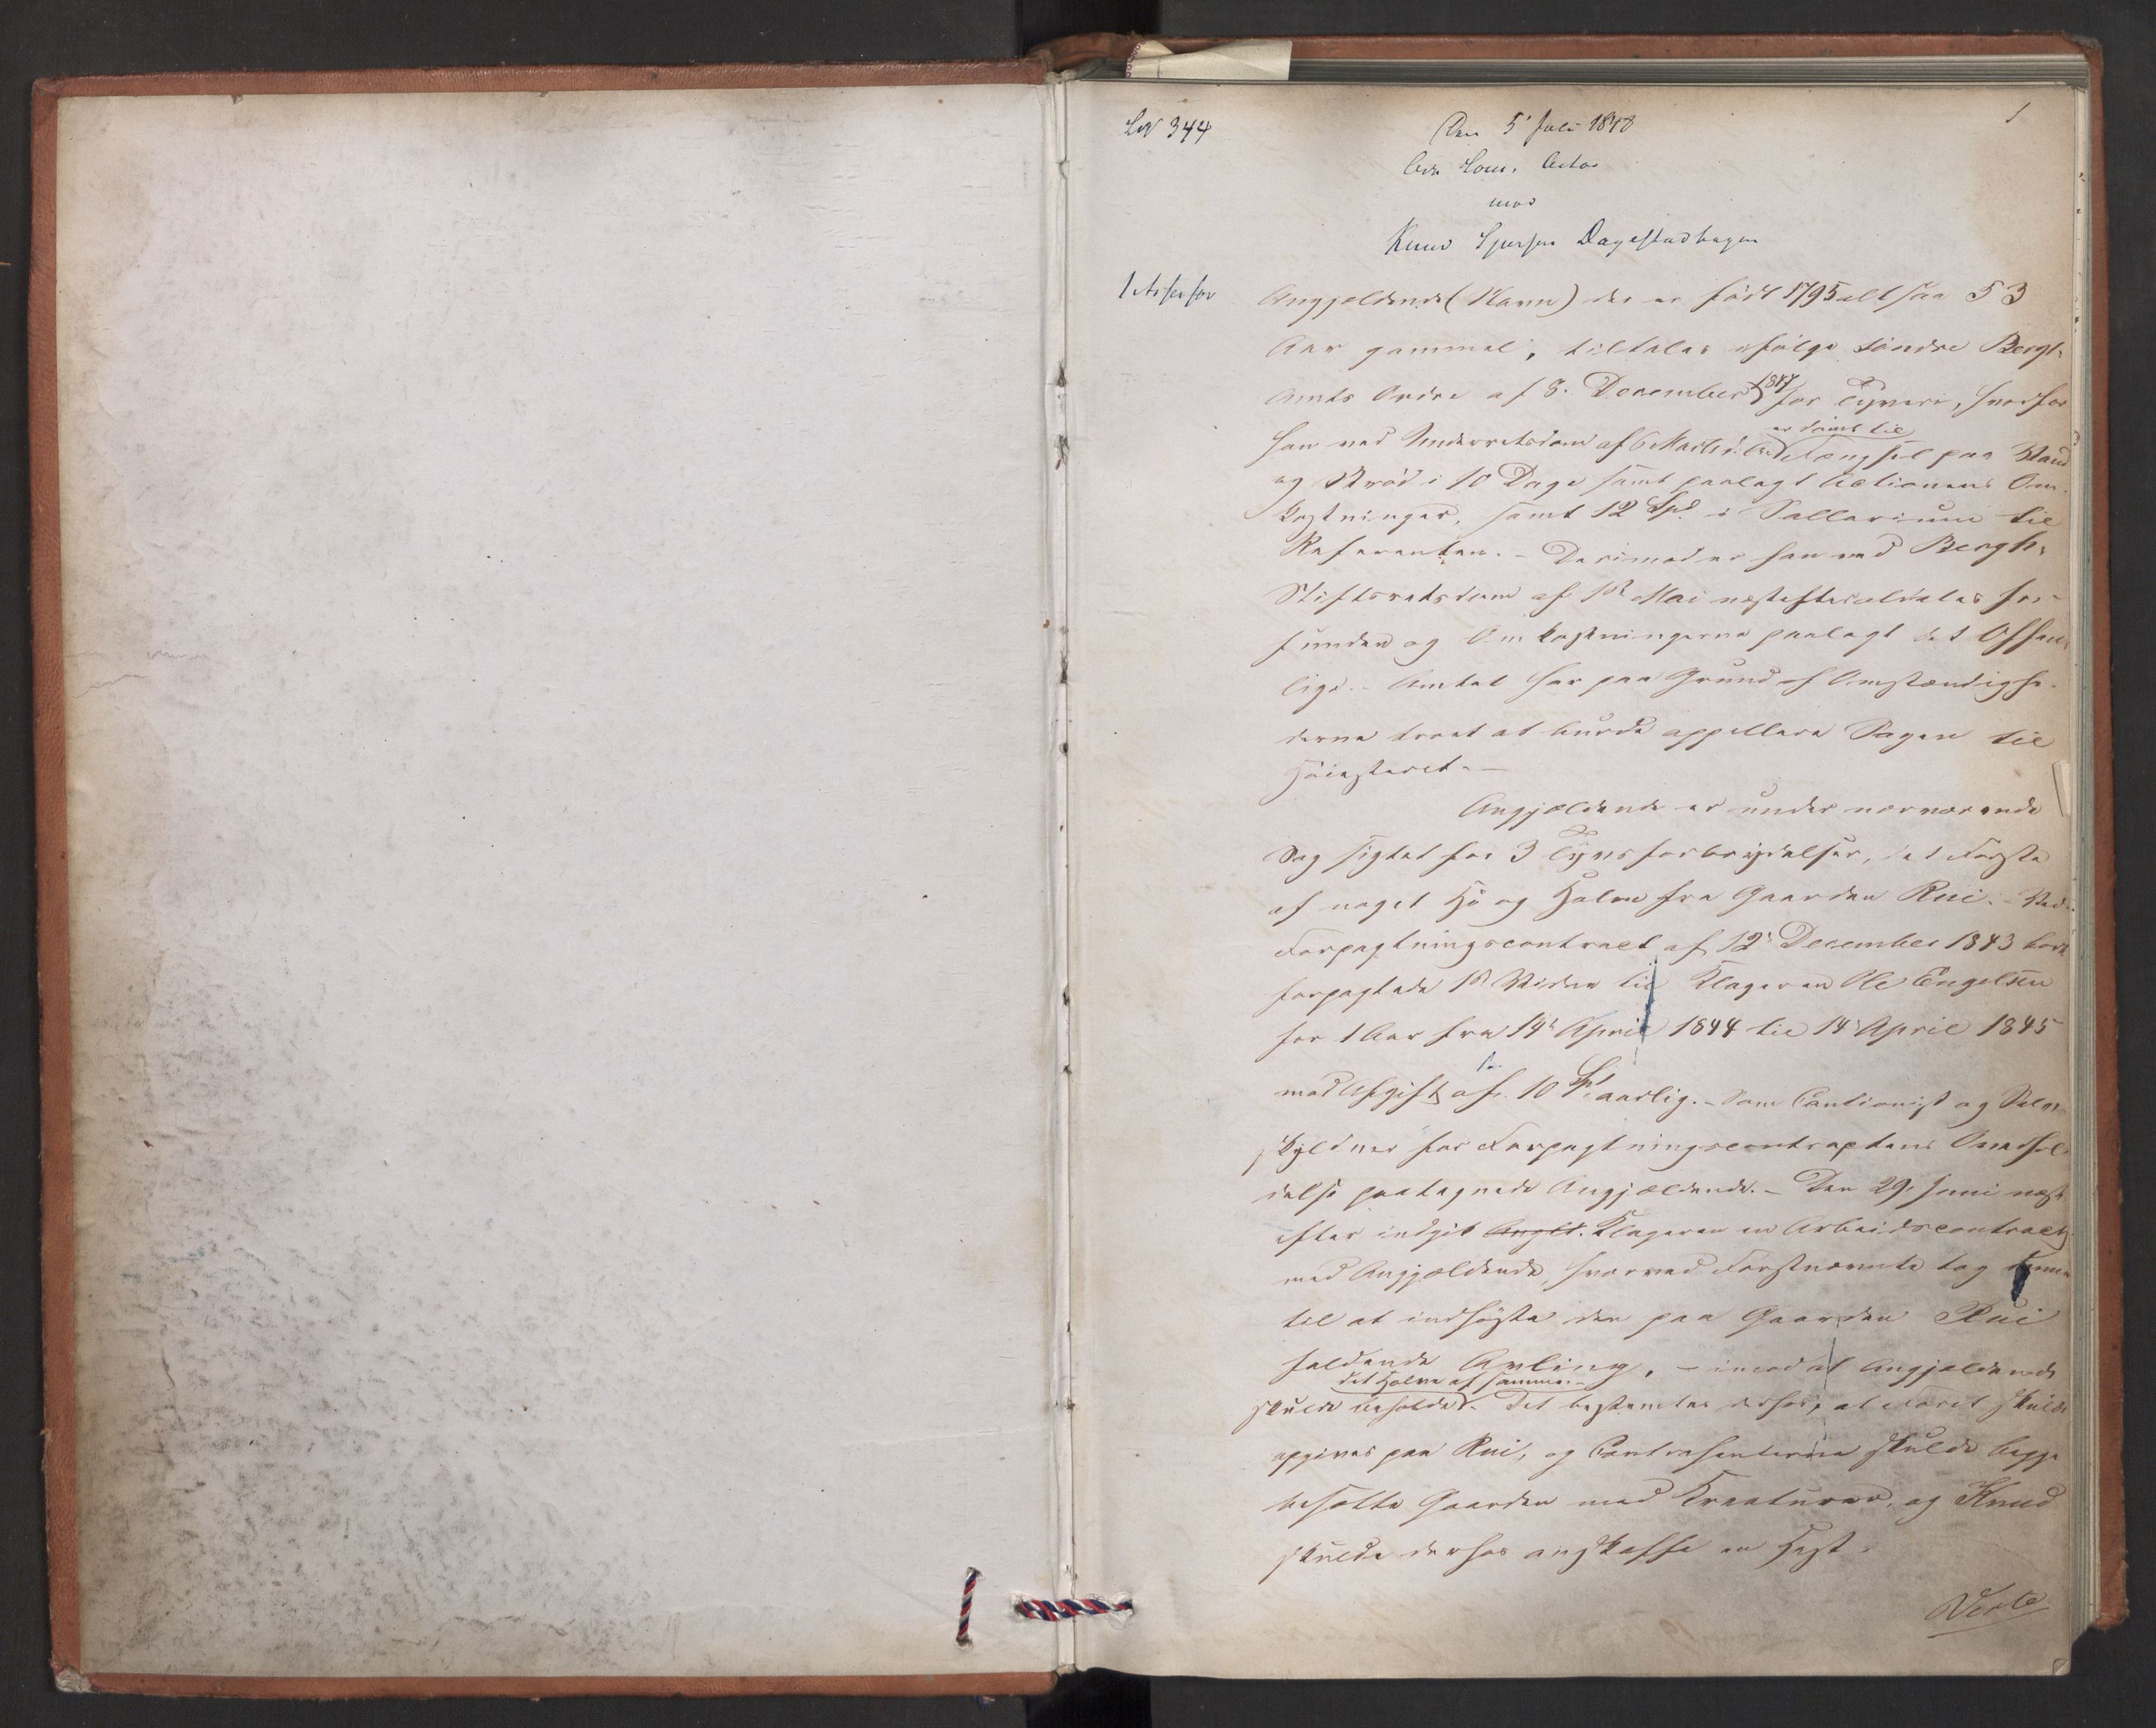 1
LN 344
Den 5' Juli 1848
Adv. Actor
mod
Knud Dagestadhagen
1 Assessor
Angjældende (Navn) der er født 1795 altsaa 53
Aar gammel, tiltales ifølge søndre Bergh.
Amts Ordre af 8. December 1847 for Tyveri, hvorfor
han ved Underretsdom af 6 Marts d. A. er dømt til Fængsel paa Vand
og Brød i 10 Dage samt paalagt Actionens Om-
kostninger, samt 12 Spd i Sallarium til
Referenten. - Derimod er han ved Bergh.
Stiftsretsdom af 1ste Mai næstefter aldeles fri-
funden og Omkostningerne paalagt det Offent-
lige. - Amtet har paa Grund af Omstændighe-
derne troet at burde appellere Sagen til
Høiesteret. -
Angjældende er under nærværende
Sag sigtet for 3 Tyvsforbrydelser, det Første
af noget Hø og Halm fra Gaarden Rui. - Ved
Forpagtningscontract af 12' December 1843 bort
forpagtede 1ste Vidne til Klageren Ole Engelsen
for 1 Aar fra 14' April 1844 til 14' April 1845
mod Afgift af 10 Spd aarlig. - Som Cautionist og Selv-
skyldner for Forpagtningscontractens Overhol-
delse paategnede Angjældende. - Den 29. Juni næst
efter indgik Anglds. Klageren en Arbeidscontract
med Angjældende, hvorved Førstnævnte tog denne
til at indhøste den paa Gaarden Rui
faldende Avling, - imod at Angjældende
det Halve af samme. -
skulde beholde. Det bestemtes derhos, at Foret skulde
opgives paa Rui, og Contrahenterne skulde begge
besætte Gaarden med Kreaturer, og Knud
skulde derhos anskaffe en Hest.
Verte